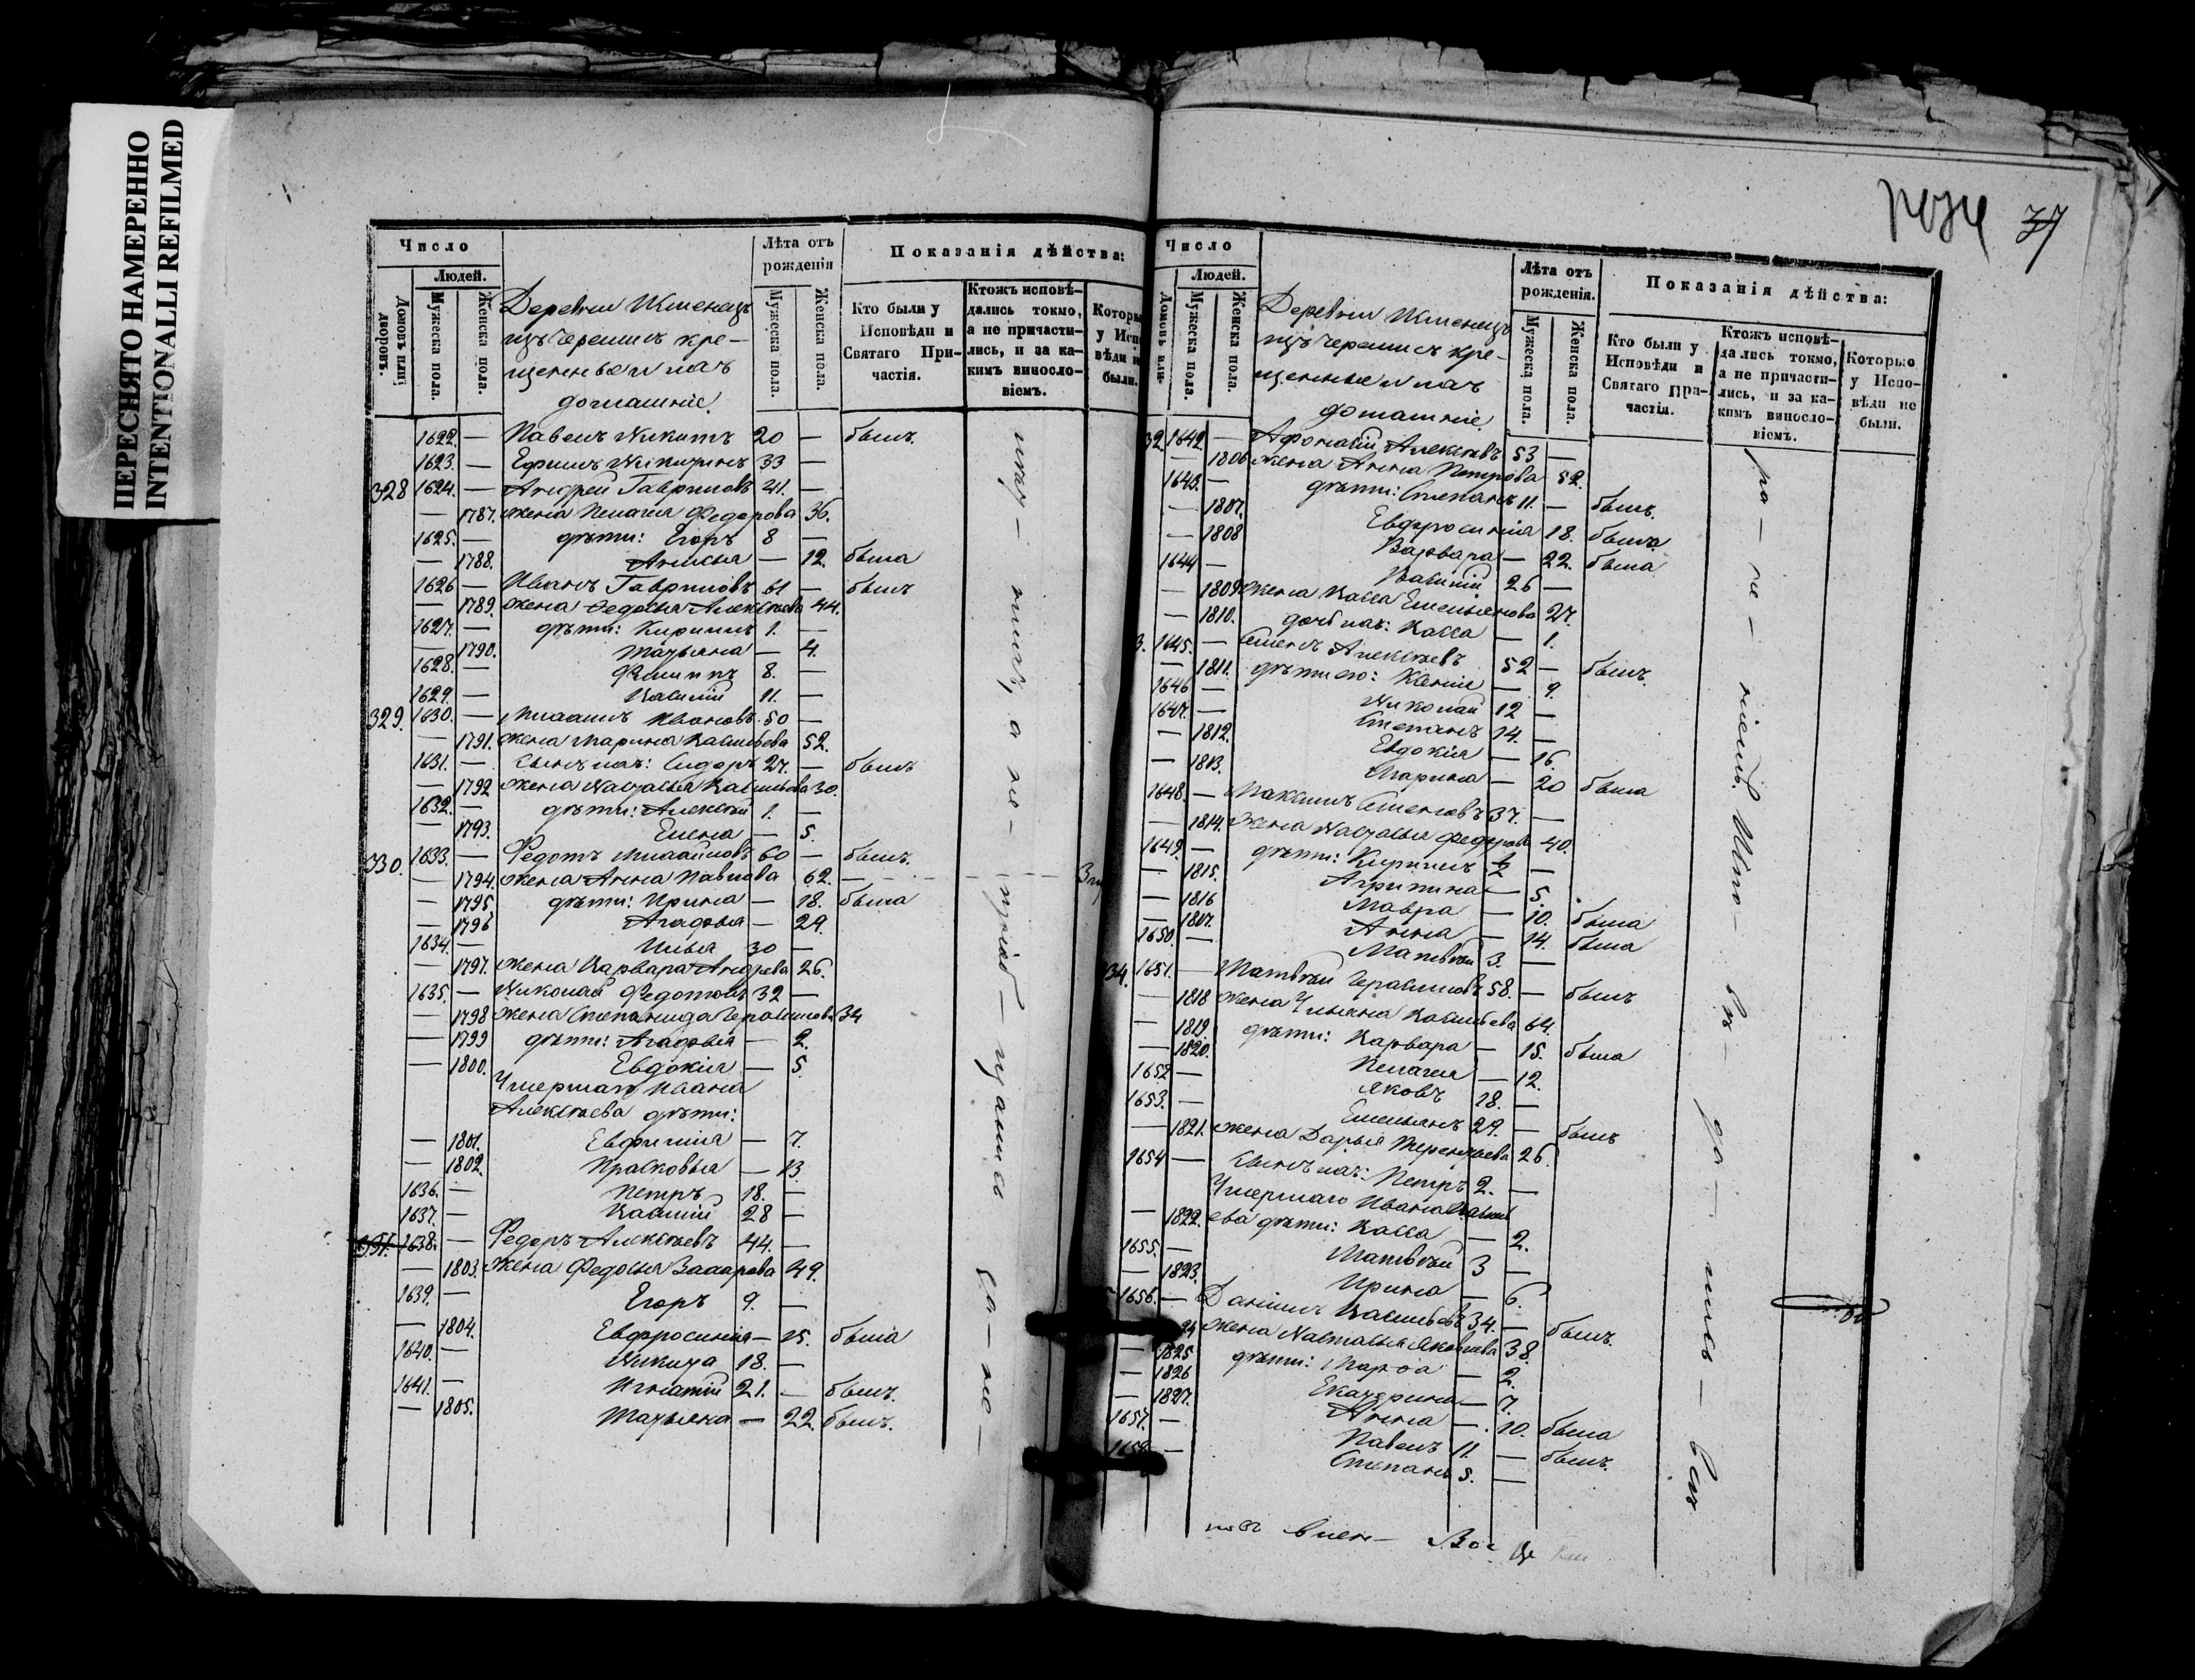 ПЕРЕСНЯТО НАМЕРЕННО
INTENTIONALLI REFILMED
37
Число
Людей.
Домовъ или дворовъ.
Мужеска пола.
Женска пола.
Лѣта отъ рожденія
Мужеска пола.
Женска пола.
Показанія дѣйства:
Кто были у Исповѣди и Святаго Причастія.
Ктожъ исповѣдались токмо, а не причастились, и за какимъ винословіемъ.
Деревни
изъ черемисъ кре-
щенные и ихъ
домашніе.
1622. — Павелъ Никит 20 — былъ.
1623. — Ефимъ Никитинъ 33 —
328 1624. — Андрей Гавриловъ 41. —
— 1787. жена Пелагея Федорова 36.
1625. — дѣти: Егоръ 8 —
— 1788. Анисья — 12. была
1626 — Иванъ Гавриловъ 61 — былъ
— 1789. жена Федосья Алексѣева 44.
1627. — дѣти: Кирилъ 1. —
— 1790. Татьяна — 4.
1628. — Филиппъ 8. —
1629. — Василій 11. —
329. 1630. — Ивановъ 50 —
— 1791. жена Марина Васильева 52.
1631. — сынъ ихъ: Сидоръ 27. — былъ
— 1792 жена Настасья Васильева 30.
1632. — дѣти: Алексѣй 1. —
— 1793. Елена — 5.
330. 1633. — Федотъ 60 — былъ.
— 1794. жена Анна Павлова 62. —
— 1795 дѣти: Ирина — 18. была
— 1796 Агафья — 29.
1634. — Илья 30 —
— 1797. жена Варвара Андреева 26.
1635. — Николай Федотовъ 32 —
— 1798 жена Степанида Герасимова 34
— 1799 дѣти: Агафья — 2.
— 1800. Евдокія — 5.
Умершаго Ивана
Алексѣева дѣти:
— 1801. Евфимія — 7.
— 1802. Прасковья — 13.
1636. — Петръ 18. —
1637. — Василій 28 —
331. 1638. — Федоръ Алексѣевъ 44. —
— 1803. жена Федосья Захарова 49.
1639. — Егоръ 9. —
— 1804. Евфросинія — 15. была
1640. — Никита 18. —
1641. — Игнатій 21. — былъ.
— 1805. Татьяна — 22. былъ.
Число
Людей.
Мужеска пола.
Женска пола.
Лѣта отъ рожденія.
Мужеска пола.
Женска пола.
Показанія дѣйства:
Кто были у Исповѣди и Святаго Причастія.
Ктожъ исповѣдались токмо, а не причастились, и за какимъ винословіемъ.
Которые у Исповѣди не были.
Деревни
изъ черемисъ кре-
щенные и ихъ
домашніе
32. 1642. — Афонасій Алексѣевъ 53 —
— 1806 жена Анна Петрова 52.
1643. — дѣти: Степанъ 11. — былъ.
— 1807. Евфросинія 18. была
— 1808 Варвара — 22. была
1644 — Василій 26 —
— 1809 жена Васса Емельянова 27.
— 1810. дочь ихъ: Васса — 1.
3. 1645. — Семенъ Алексѣевъ 52 — былъ.
— 1811. дѣти его: Ксенія — 9.
1646 — Николай 12 —
1647. — Степанъ 14. —
— 1812. Евдокія — 16.
— 1813. Марина — 20 была
1648. — Максимъ Семеновъ 37. —
— 1814. жена Настасья Федорова 40.
1649. — дѣти: Кирилъ —
— 1815. Агрипина — 5.
— 1816 Мавра — 10. была
— 1817. Анна — 14. была
1650. — Матвѣй 3. —
34. 1651. — Матвѣй Герасимовъ 58. — былъ
— 1818 жена Ульяна Васильева 64.
— 1819. дѣти: Варвара — 15. была
— 1820. Пелагея — 12.
1652 — Яковъ 18. —
1653. — Емельянъ 29. — былъ
— 1821. жена Дарья Терентьева 26.
1654 — сынъ ихъ: Петръ 2. —
Умершаго Ивана
— 1822. ева дѣти: Васса — 2.
1655. — Матвѣй 3 —
— 1823. Ирина — 6.
1656. — Даніилъ Васильевъ 34. — былъ.
жена Настасья Яковлева 38.
— 1825 дѣти: Марѳа — 2.
— 1826 Екатерина — 7.
— 1827. Анна — 10. была
1657. — Павелъ 11. — былъ.
1658. — Степанъ 5. —